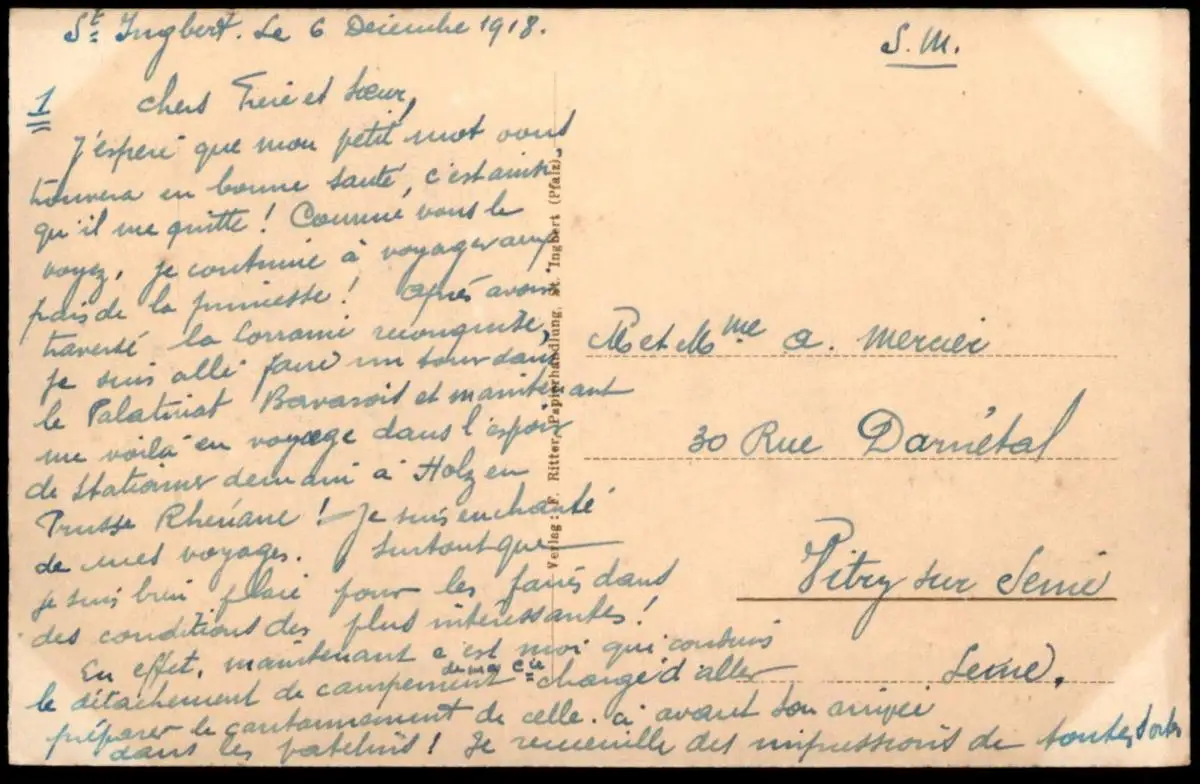 St Ingbert. Le 6 Décembre 1918.
S.M.
1
Chers Frère et Sœur,
J'espère que mon petit mot vous
trouvera en bonne santé, c'est ainsi
qu'il me quitte! Comme vous le
voyez, je continue à voyager aux
frais de la princesse! Après avoir
traversé la Lorraine reconquise,
je suis allé faire un tour dans
le Palatinat Bavarois et maintenant
me voilà en voyage dans l'espoir
de stationner demain à Holz en
Prusse Rhénane! Je suis enchanté
de mes voyages. Surtout que
je suis bien placé pour les faire dans
des conditions des plus intéressantes!
En effet, maintenant c'est moi qui conduis
le détachement de campement de ma Cie chargé d'aller
préparer le cantonnement de celle-ci avant son arrivée
dans les patelins! Je recueille des impressions de toutes sortes
Verlag: F. Ritter, Papierhandlung, St. Ingbert (Pfalz).
M et Mme A. Mercier
30 Rue Darnétal
Vitry sur Seine
Seine.